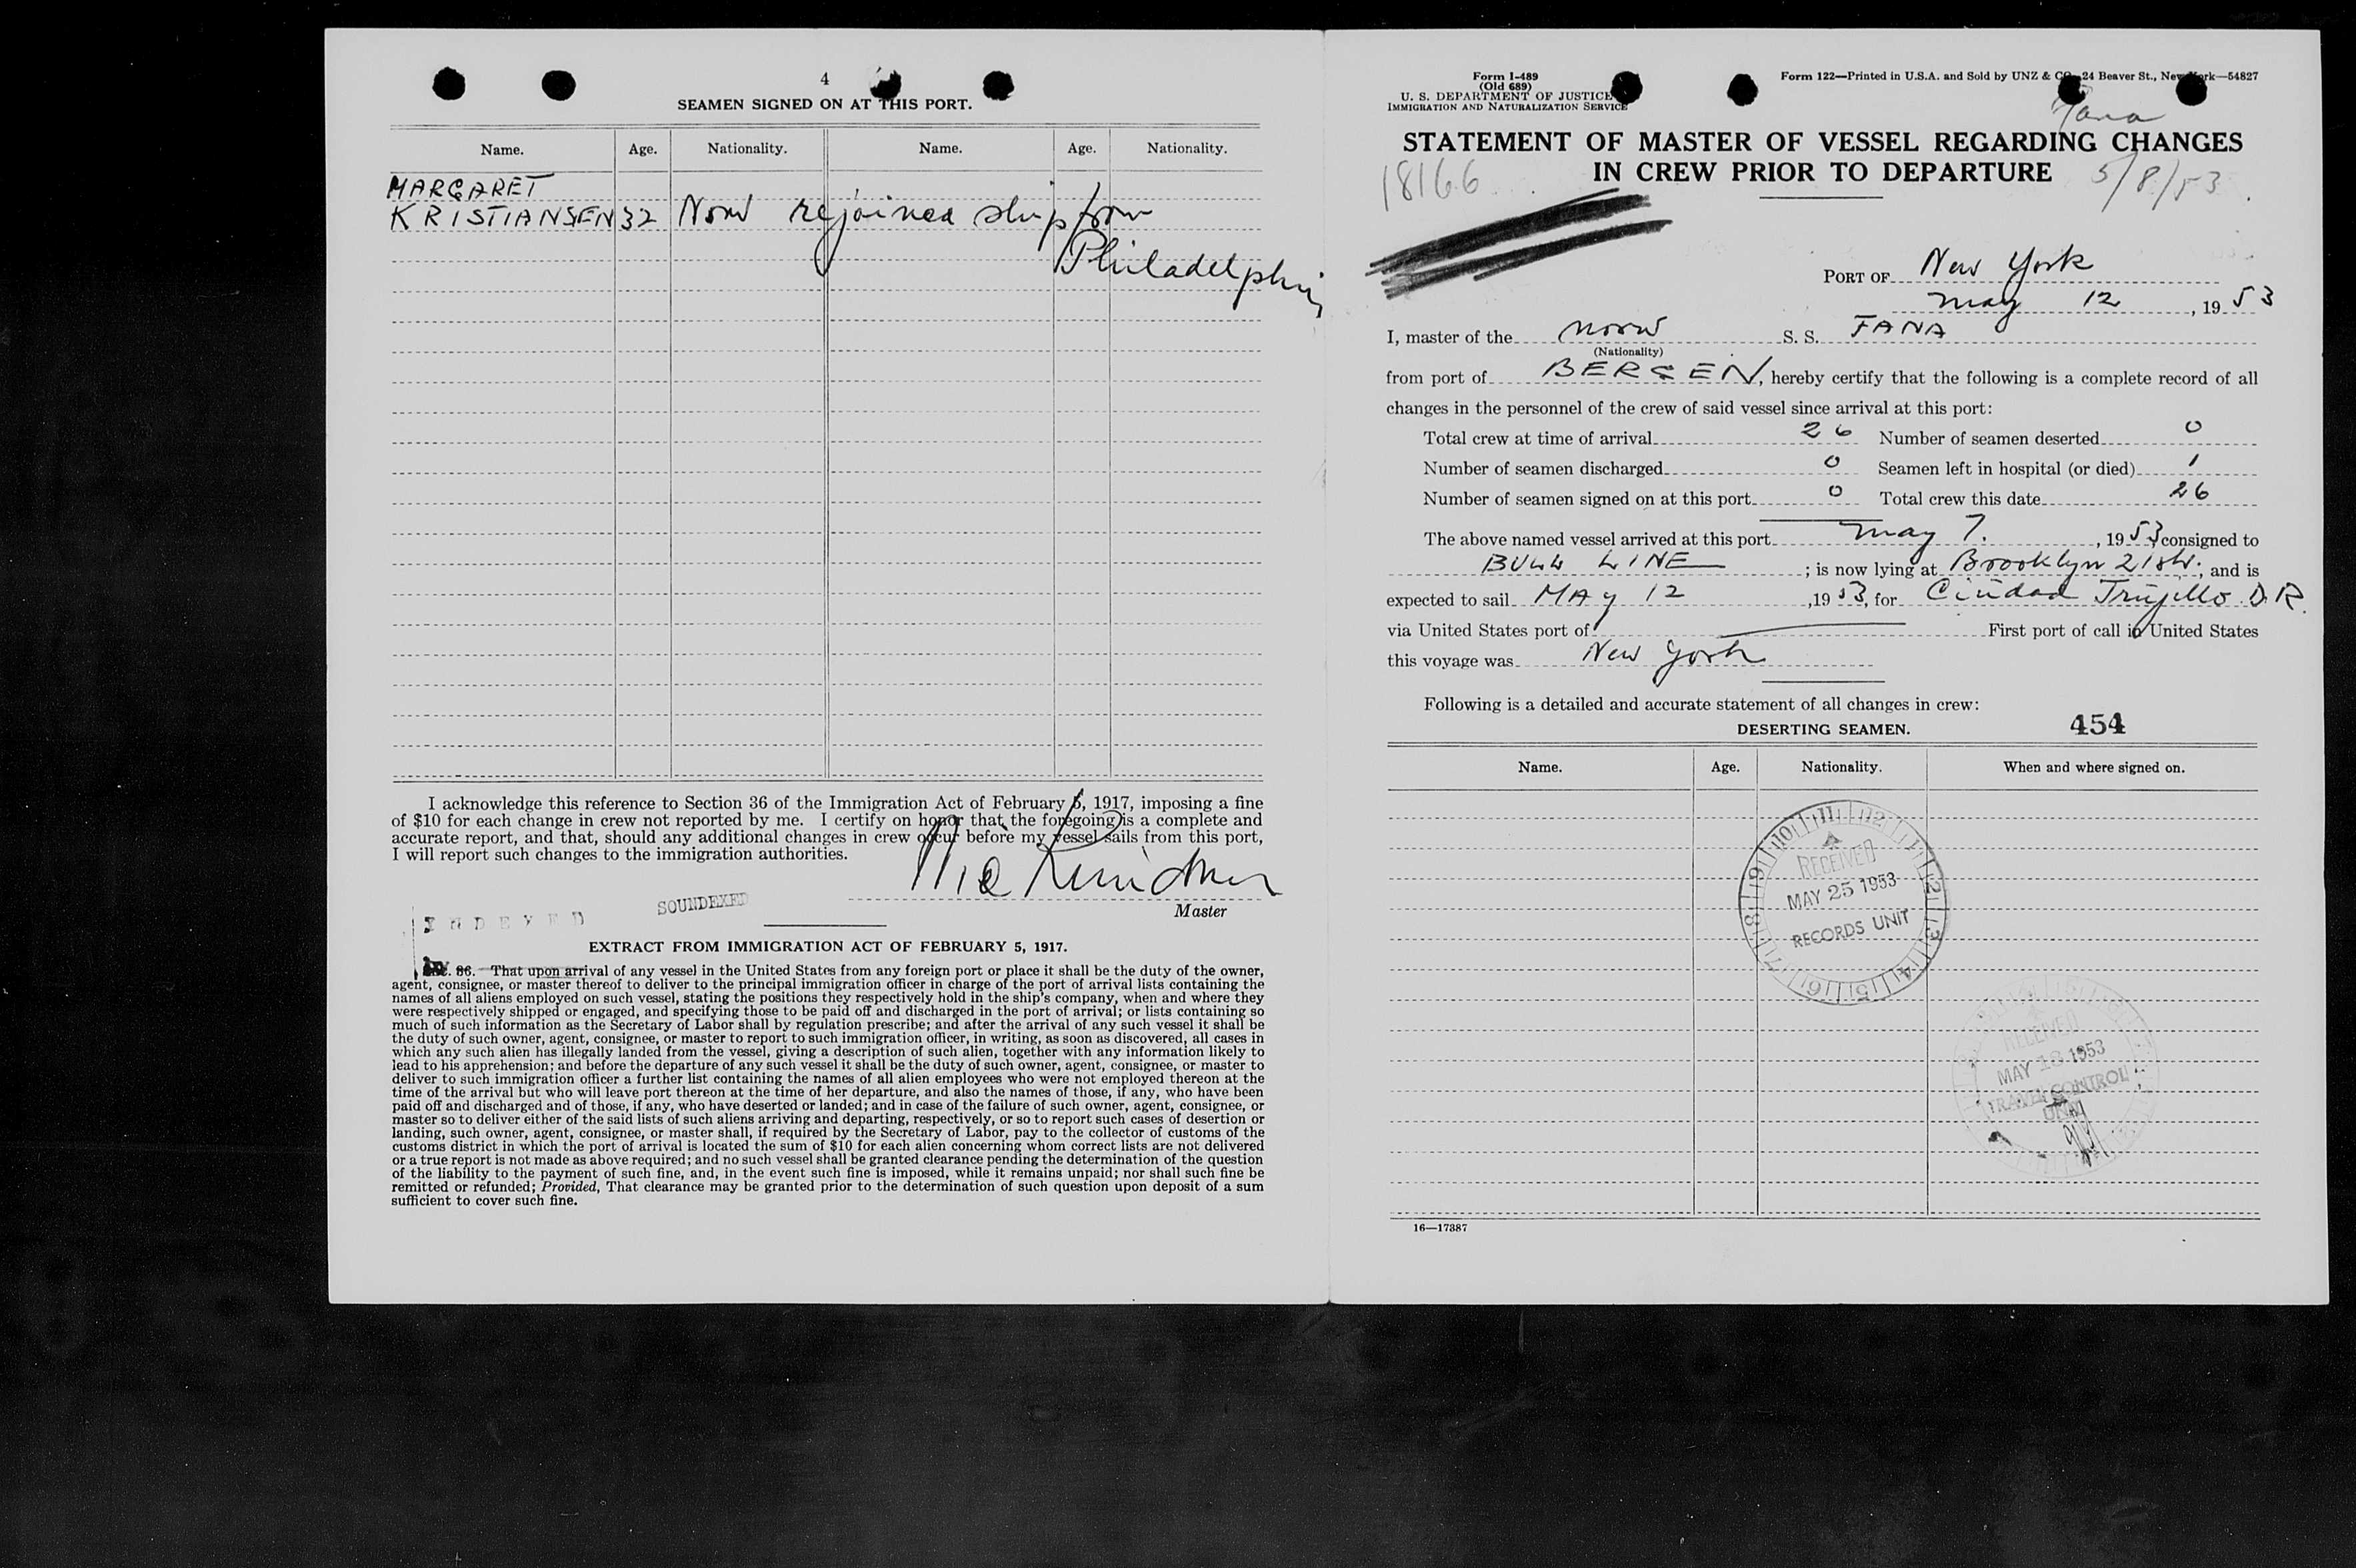 4
SEAMEN SIGNED ON AT THIS PORT.
Name. Age. Nationality. Name. Age. Nationality.
MARGARET
KRISTIANSEN 32 Norw rejoined ship from
Philadelphia
I acknowledge this reference to Section 36 of the Immigration Act of February 5, 1917, imposing a fine
of $10 for each change in crew not reported by me. I certify on honor that the foregoing is a complete and
accurate report, and that, should any additional changes in crew occur before my vessel sails from this port,
I will report such changes to the immigration authorities.
Master
INDEXED
SOUNDEXED
EXTRACT FROM IMMIGRATION ACT OF FEBRUARY 5, 1917.
36. That upon arrival of any vessel in the United States from any foreign port or place it shall be the duty of the owner,
agent, consignee, or master thereof to deliver to the principal immigration officer in charge of the port of arrival lists containing the
names of all aliens employed on such vessel, stating the positions they respectively hold in the ship's company, when and where they
were respectively shipped or engaged, and specifying those to be paid off and discharged in the port of arrival; or lists containing so
much of such information as the Secretary of Labor shall by regulation prescribe; and after the arrival of any such vessel it shall be
the duty of such owner, agent, consignee, or master to report to such immigration officer, in writing, as soon as discovered, all cases in
which any such alien has illegally landed from the vessel, giving a description of such alien, together with any information likely to
lead to his apprehension; and before the departure of any such vessel it shall be the duty of such owner, agent, consignee, or master to
deliver to such immigration officer a further list containing the names of all alien employees who were not employed thereon at the
time of the arrival but who will leave port thereon at the time of her departure, and also the names of those, if any, who have been
paid off and discharged and of those, if any, who have deserted or landed; and in case of the failure of such owner, agent, consignee, or
master so to deliver either of the said lists of such aliens arriving and departing, respectively, or so to report such cases of desertion or
landing, such owner, agent, consignee, or master shall, if required by the Secretary of Labor, pay to the collector of customs of the
customs district in which the port of arrival is located the sum of $10 for each alien concerning whom correct lists are not delivered
or a true report is not made as above required; and no such vessel shall be granted clearance pending the determination of the question
of the liability to the payment of such fine, and, in the event such fine is imposed, while it remains unpaid; nor shall such fine be
remitted or refunded; Provided, That clearance may be granted prior to the determination of such question upon deposit of a sum
sufficient to cover such fine.
Form I-489
(Old 689)
U. S. DEPARTMENT OF JUSTICE
IMMIGRATION AND NATURALIZATION SERVICE
Form 122—Printed in U.S.A. and Sold by UNZ & CO., 24 Beaver St., New York—54827
Fana
STATEMENT OF MASTER OF VESSEL REGARDING CHANGES
IN CREW PRIOR TO DEPARTURE
18166
5/8/53
PORT OF New York
May 12, 1953
I, master of the Norw S. S. FANA
(Nationality)
from port of BERGEN, hereby certify that the following is a complete record of all
changes in the personnel of the crew of said vessel since arrival at this port:
Total crew at time of arrival 26 Number of seamen deserted 0
Number of seamen discharged 0 Seamen left in hospital (or died) 1
Number of seamen signed on at this port 0 Total crew this date 26
The above named vessel arrived at this port May 7., 1953, consigned to
BULL LINE; is now lying at Brooklyn 21 str.; and is
expected to sail MAY 12, 1953, for Ciudad Trujillo D.R.
via United States port of First port of call in United States
this voyage was New York
Following is a detailed and accurate statement of all changes in crew:
DESERTING SEAMEN.
454
Name. Age. Nationality. When and where signed on.
RECEIVED
MAY 25 1953
RECORDS UNIT
RECEIVED
MAY 18 1953
TRAVEL CONTROL
UNIT
16—17387